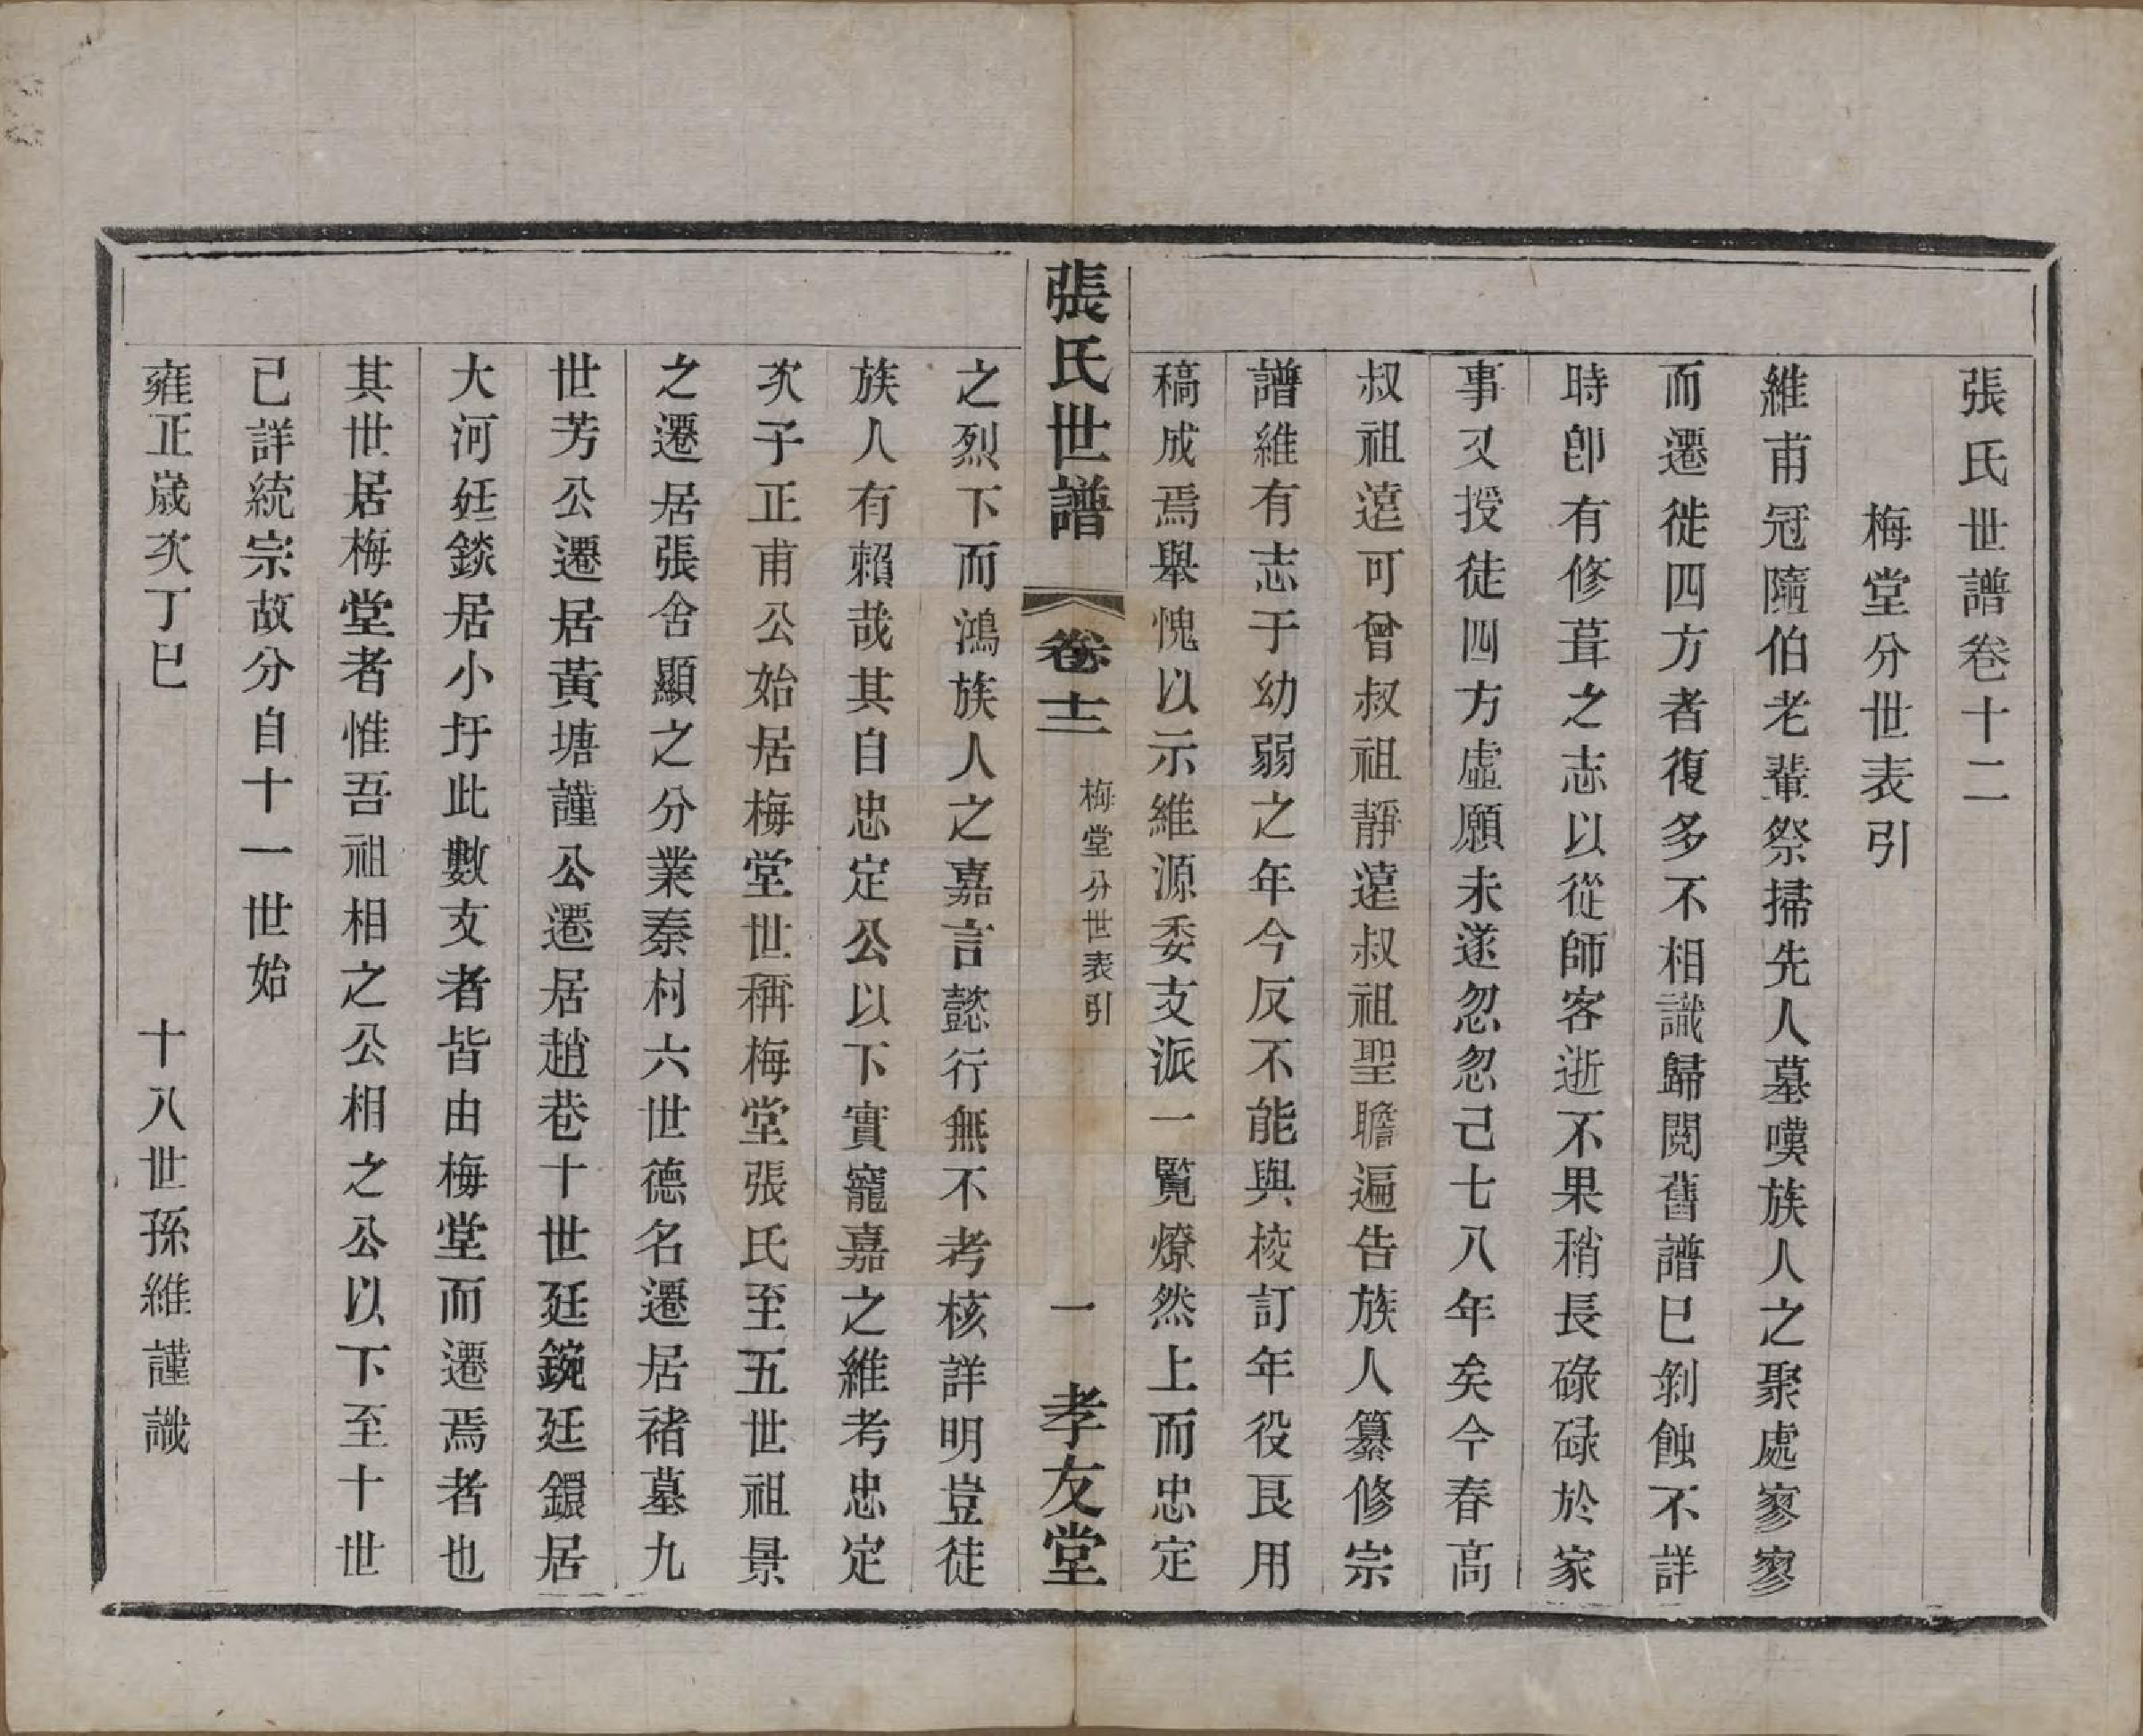 張氏世譜卷十二
梅堂分世表引
維甫冠隨伯老輩祭掃先人墓嘆族人之聚處寥寥
而遷徙四方者復多不相識歸閱舊譜已剝蝕不詳
時卽有修葺之志以從師客逝不果稍長碌碌於家
事又授徒四方虛願未遂忽忽己七八年矣今春高
叔祖遠可曾叔祖靜遠叔祖聖瞻遍告族人纂修宗
譜維有志于幼弱之年今反不能與校訂年役艮用
稿成焉舉愧以示維源委支派一覧燎然上而忠定
張氏世譜 卷十二 梅堂分世表引 一 孝友堂
之烈下而鴻族人之嘉言懿行無不考核詳明豈徒
族人有賴哉其自忠定公以下實寵嘉之維考忠定
次子正甫公始居梅堂世稱梅堂張氏至五世祖景
之遷居張舍顯之分業秦村六世德名遷居褚墓九
世芳公遷居黃塘謹公遷居趙巷十世廷鋺廷鐶居
大河廷錟居小圩此數支者皆由梅堂而遷焉者也
其世居梅堂者惟吾祖相之公相之公以下至十世
已詳統宗故分自十一世始
雍正歲次丁巳 十八世孫維謹識